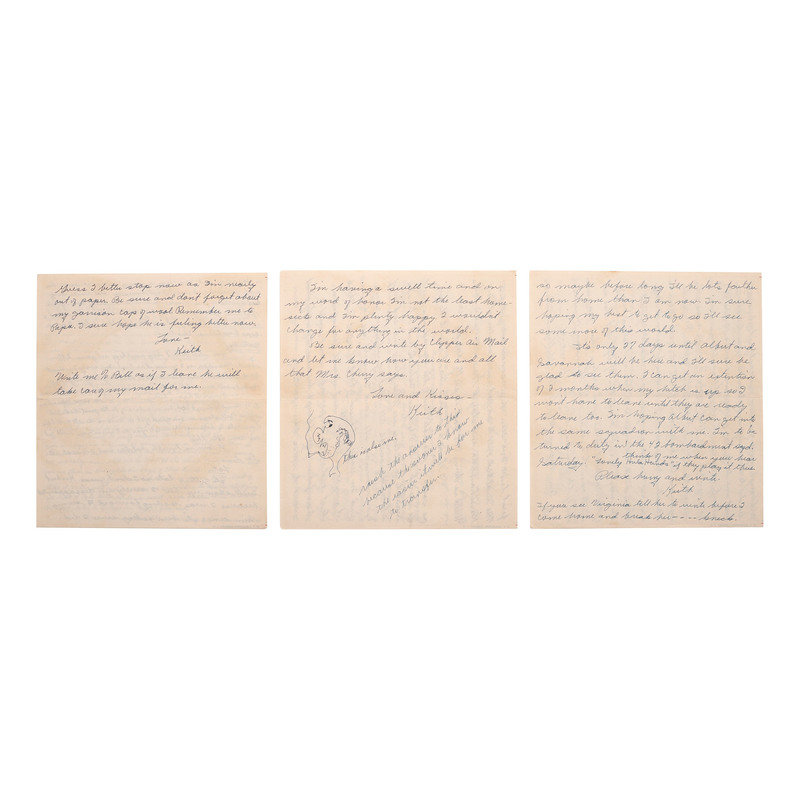 Guess I better stop now as I'm nearly
out of paper. Be sure and dont forget about
my garrison cap of wool. Remember me to
Papa. I sure hope he is feeling better now.
Love -
Keith
Write me % Bill as if I leave he will
take care of my mail for me.
I'm having a swell time and on
my word of honor I'm not the least home-
sick and I'm plenty happy. I wouldnt
change for anything in the world.
Be sure and write by Clipper Air Mail
and let me know how you are and all
that Mrs. says.
Love and Kisses -
Keith
the real me.
rush the answer to this
because the sooner I know
the easier it will be for me
to transfer.
so maybe before long I'll be lots farther
from home than I am now. I'm sure
hoping my best to get to go so I'll see
some more of this world.
Its only 27 days until Albert and
Savannah will be here and I'll sure be
glad to see them. I can get an extention
of 2 months when my hitch is up so I
wont have to leave until they are ready
to leave too. I'm hoping Albert can get into
the same squadron with me. I'm to be
turned to duty in the 42 bombardment sqd.
Saturday. think of me when you hear
"Lovely Hula Hands" if they play it there.
Please hurry and write.
Keith
If you see Virginia tell her to write before I
come home and break her - - - - neck.